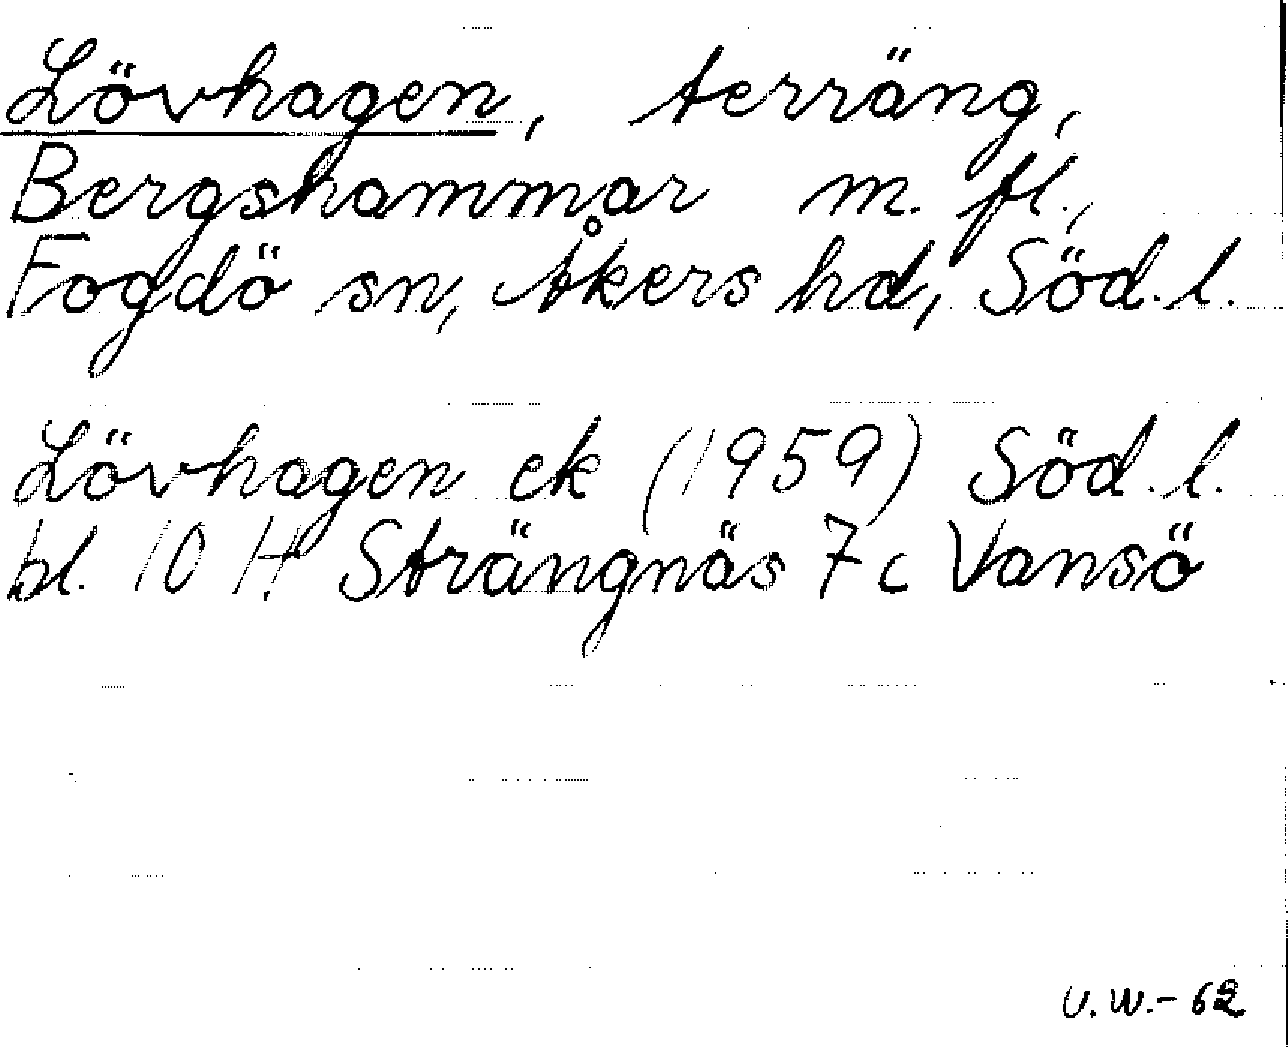 Lövhagen, terräng,
Bergshammar m. fl.,
Fogdö sn, Åkers hd, Söd. l.
Lövhagen ek (1959) Söd. l.
bl. 10 H Strängnäs 7c Vansö
U.W.-62